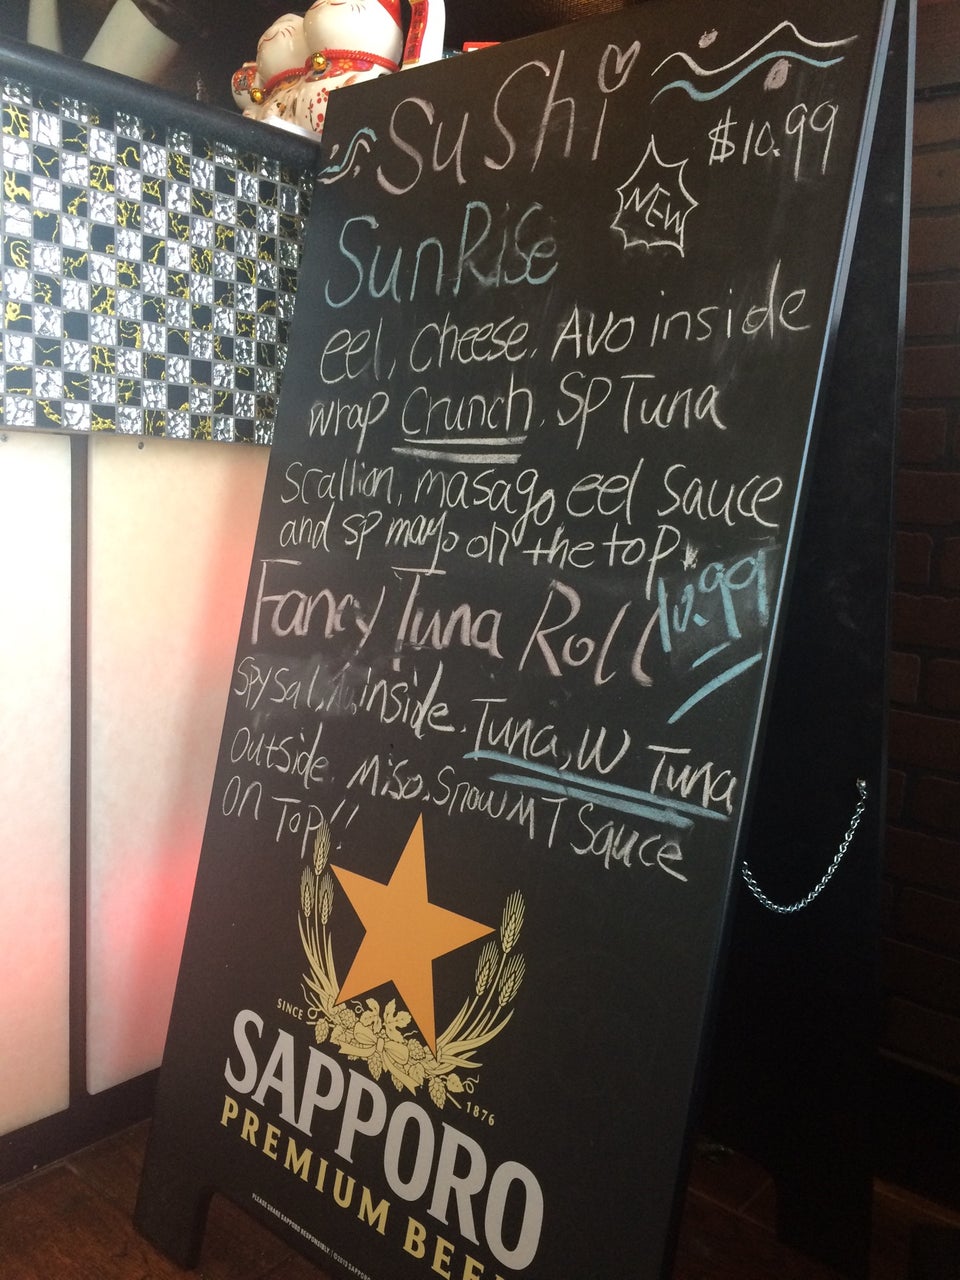 SuShi
$10.99
NEW
SunRise
eel, cheese, Avo inside
wrap Crunch, SP Tuna
scallion, masago eel sauce
and sp mayo on the top.
Fancy Tuna Roll 10.99
spy sal inside. Tuna, W Tuna
outside. Miso. Snow MT Sauce
on Top!!
SINCE 1876
SAPPORO
PREMIUM BEE
PLEASE SHARE SAPPORO RESPONSIBLY.